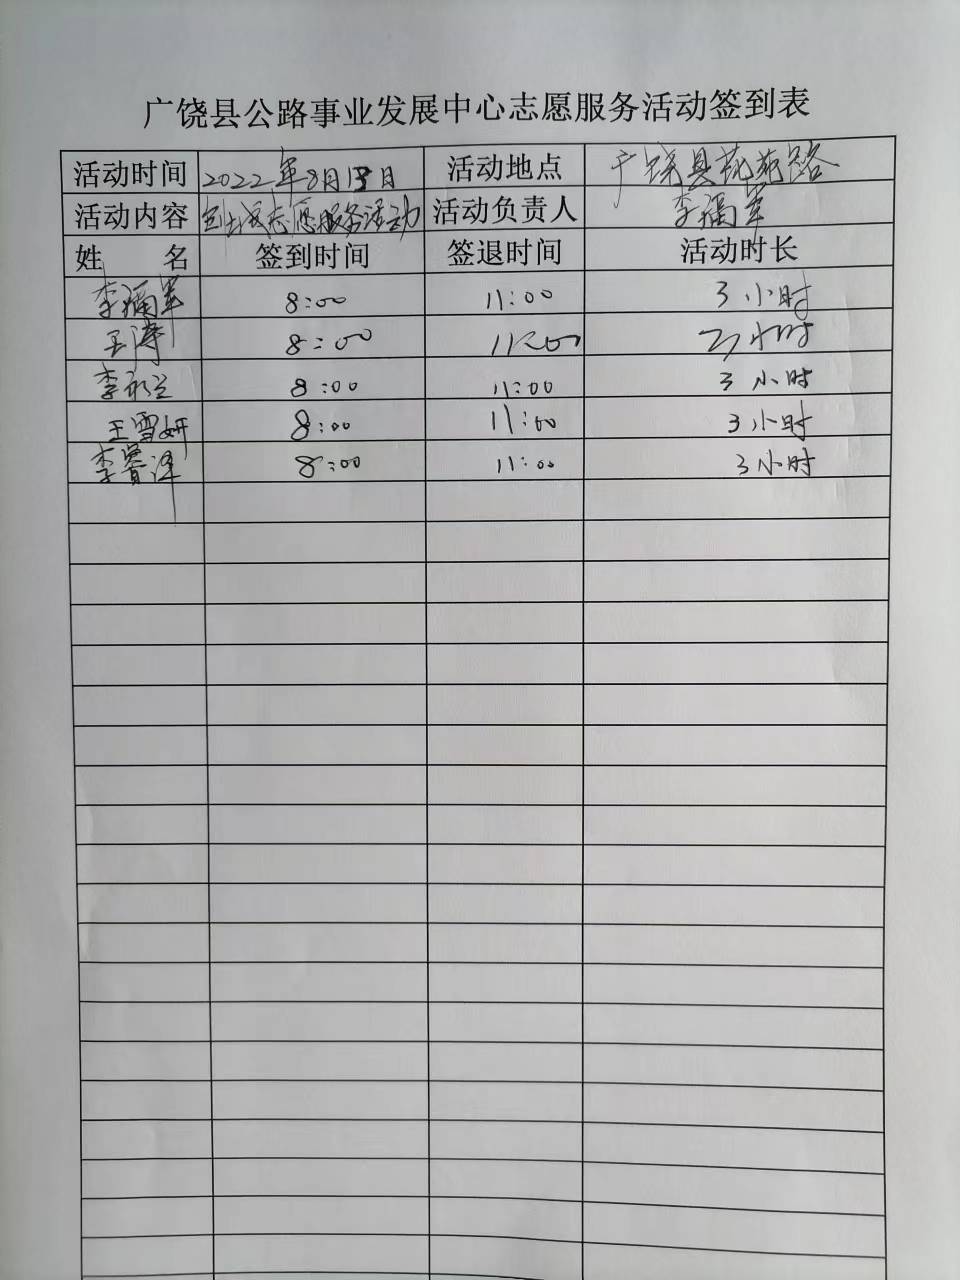 广饶县公路事业发展中心志愿服务活动签到表
活动时间 2022年8月13日 活动地点 广饶县花苑路
活动内容 创城志愿服务活动 活动负责人 李福军
姓 名 签到时间 签退时间 活动时长
李福军 8:00 11:00 3小时
王涛 8:00 11:00 3小时
李永兰 8:00 11:00 3小时
王雪妍 8:00 11:00 3小时
李睿泽 8:00 11:00 3小时